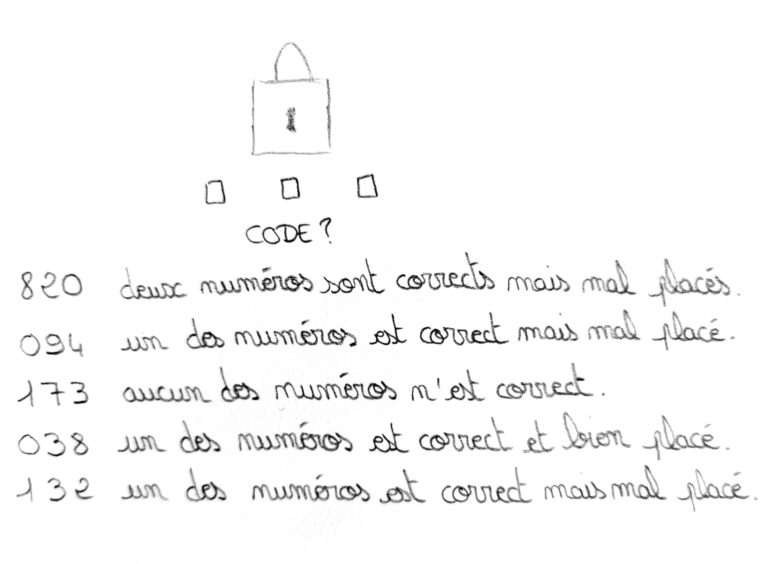 CODE?
820 deux numéros sont corrects mais mal placés.
094 un des numéros est correct mais mal placé.
173 aucun des numéros n'est correct.
038 un des numéros est correct et bien placé.
132 un des numéros est correct mais mal placé.